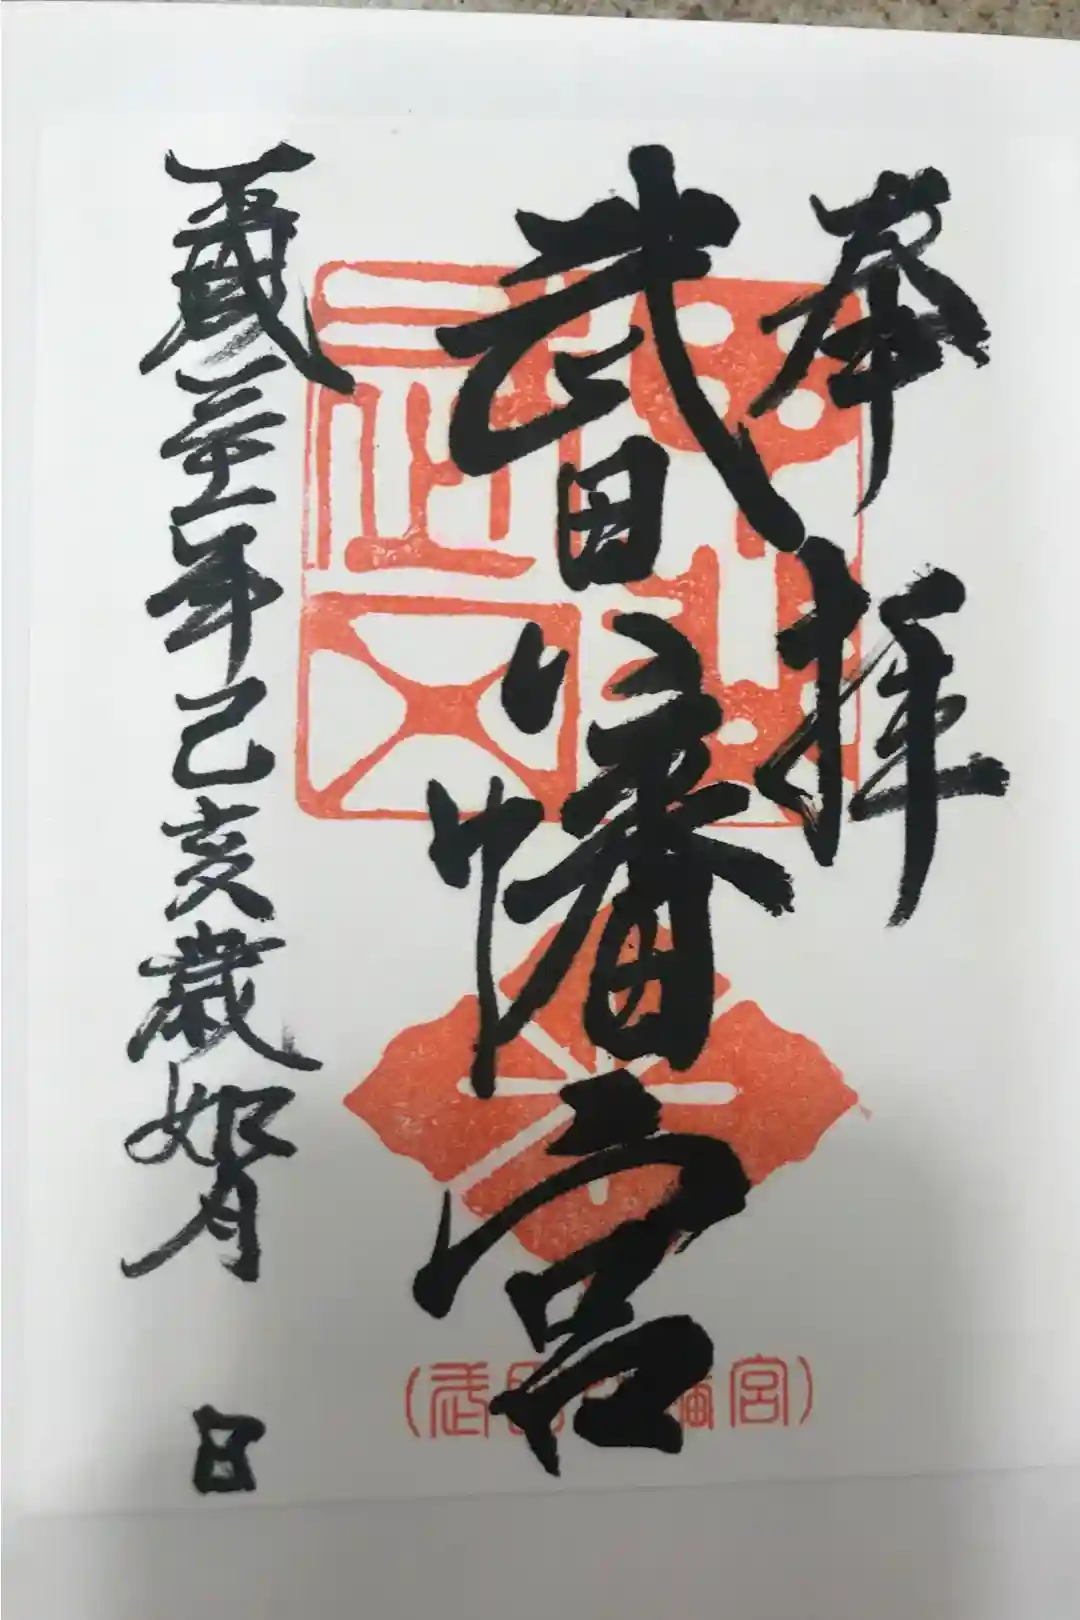 奉拝
武田八幡宮
平成三十一年己亥歳如月 日
(武田八幡宮)